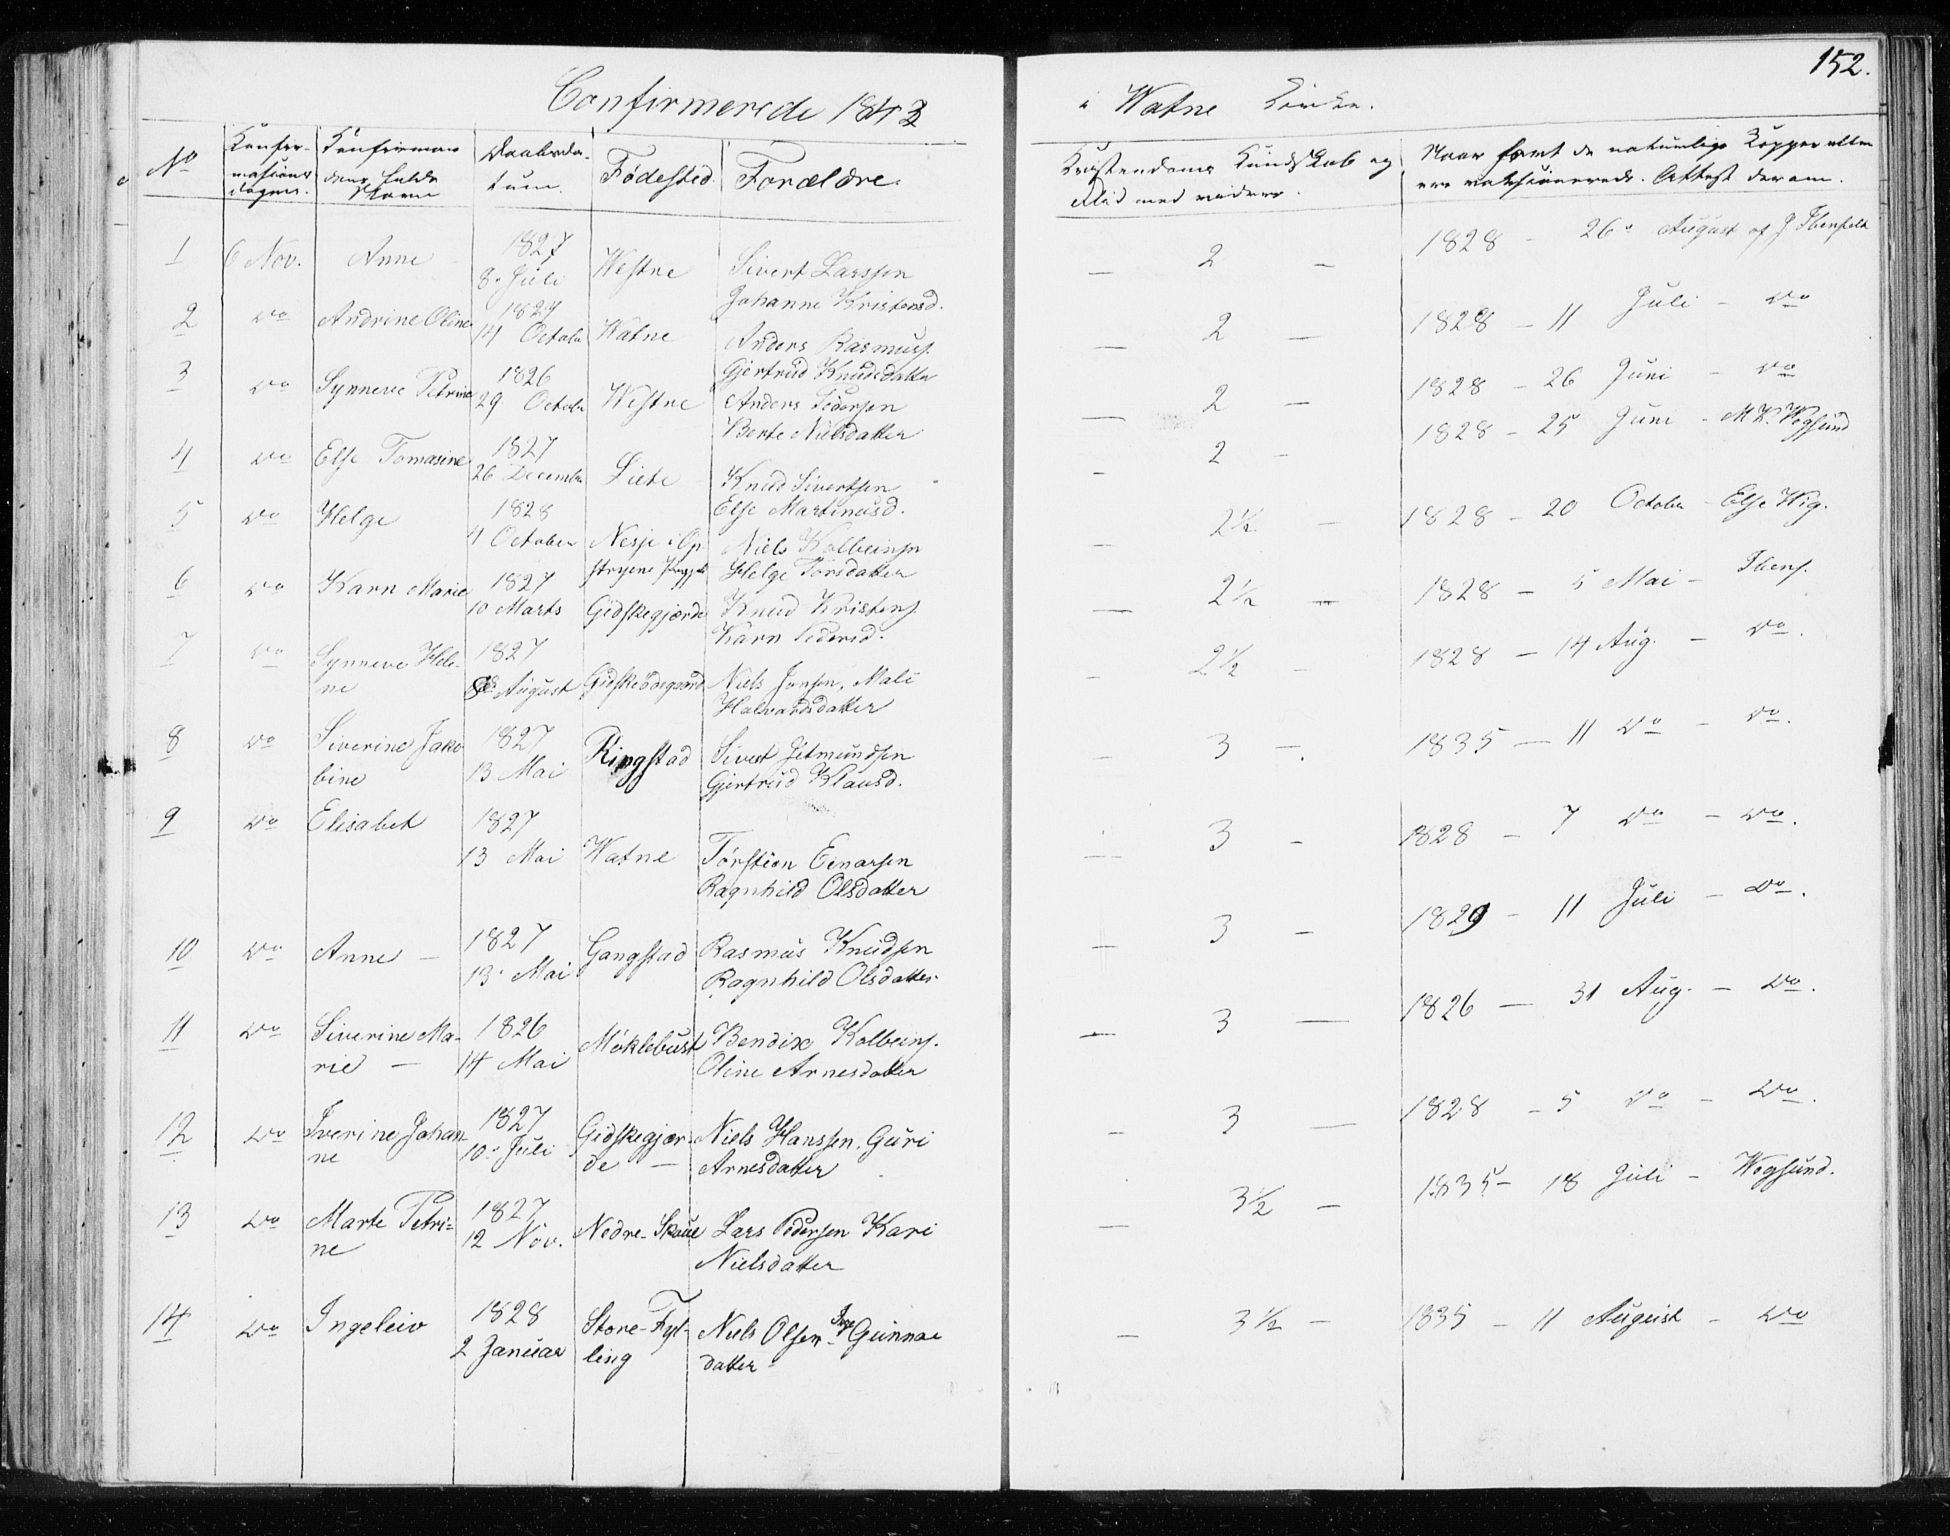 152.
Confirmerede 1843 i Watne Kirke.
No | Konfirmasions dagen. | Konfirmandens fulde Navn | Daabsdatum. | Fødested | Forældre. | Kristendoms Kundskab og Flid med videre. | Naar havt de naturlige Kopper eller ere vaksinerede. Attest derom.
1 | 6 Nov. | Anne | 1827 | Westre | Sivert Larssen | 2 | 1828 - 26 August af J Ibenfeldt
8. Juli | Johanne Kristensd.
2 | do | Andrine Oline | 1827 | Watne | Anders Rasmuss. | 2 | 1828 - 11 Juli - do
14 October | Gjertrud Knudsdatter
3 | do | Synneve Petrine | 1826 | Westre | Anders Pedersen | 2 | 1828 - 26 Juni - do
29 October | Berte Nielsdatter
4 | do | Else Tomasine | 1827 | Liete | Knud Sivertsen | 2 | 1828 - 25 Juni - M K. Wogsund
26 December | Else Martinusd.
5 | do | Helge | 1828 | Nesje i Op | Niels Kolbeinsen | 2½ | 1828 - 20 October - Else Wig.
4 October | stryens | Helge Torsdatter
6 | do | Karn Marie | 1827 | Gidskegjærde | Knud Kristens. | 2½ | 1828 - 5 Mai - Ibenf.
10 Marts | Karn Pedersd.
7 | do | Synneve Hele- | 1827 | Gidskeødegaard | Niels Jonsen, Mali | 2½ | 1828 - 14 Aug. - do.
ne | August | Halvardsdatter
8 | do | Siverine Jako | 1827 | Ringstad | Sivert Jetmundsen | 3 | 1835 - 11 do - do.
bine | 13 Mai | Gjertrud Klausd.
9 | do | Elisabet | 1827 | Watne | Torstien Einarsen | 3 | 1828 - 7 do - do.
13 Mai | Ragnhild Olsdatter
10 | do | Anne | 1827 | Gangstad | Rasmus Knudsen | 3 | 1829 - 11 Juli - do.
13. Mai | Ragnhild Olsdatter
11 | do | Siverine Ma- | 1826 | Møklebust | Bendix Kolbeins. | 3 | 1826 - 31 Aug. - do.
rie | 14 Mai | Oline Arnesdatter
12 | do | Iverine Johan- | 1827 | Gidskegjær- | Niels Hanssen, Guri | 3 | 1828 - 5 do - do.
ne | 10. Juli | de | Arnesdatter
13 | do | Marte Petri= | 1827 | Nedre-Skaue | Lars Pedersen Kari | 3½ | 1835 - 18 Juli - Wogsund.
ne | 12 Nov. | Nielsdatter
14 | do | Ingeleiv | 1828 | Store-Fyl- | Niels Olsen Gunnar | 3½ | 1835 - 11 August - do
2 Januar | ling | datter